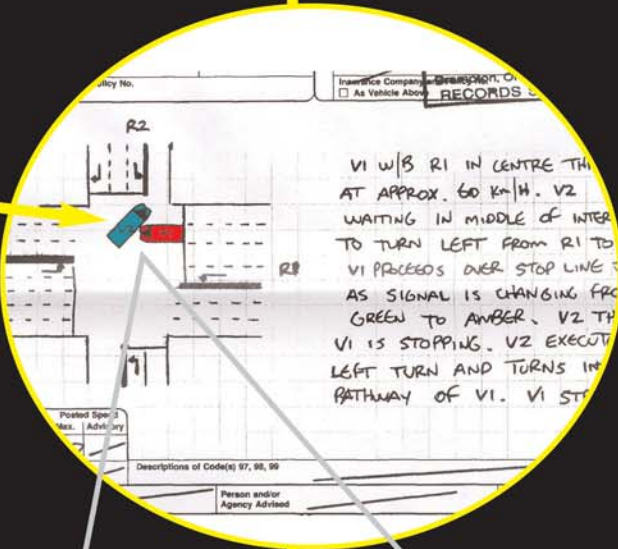 olicy No.
Insurance Company
As Vehicle Above
Brampton, O
RECORDS S
R2
R1
V1 W/B R1 IN CENTRE TH
AT APPROX. 60 Km/H. V2
WAITING IN MIDDLE OF INTER
TO TURN LEFT FROM R1 TO
V1 PROCEEDS OVER STOP LINE
AS SIGNAL IS CHANGING FRO
GREEN TO AMBER. V2 TH
V1 IS STOPPING. V2 EXECUT
LEFT TURN AND TURNS IN
PATHWAY OF V1. V1 ST
Posted Speed
Max. Advisory
Descriptions of Code(s) 97, 98, 99
Person and/or
Agency Advised